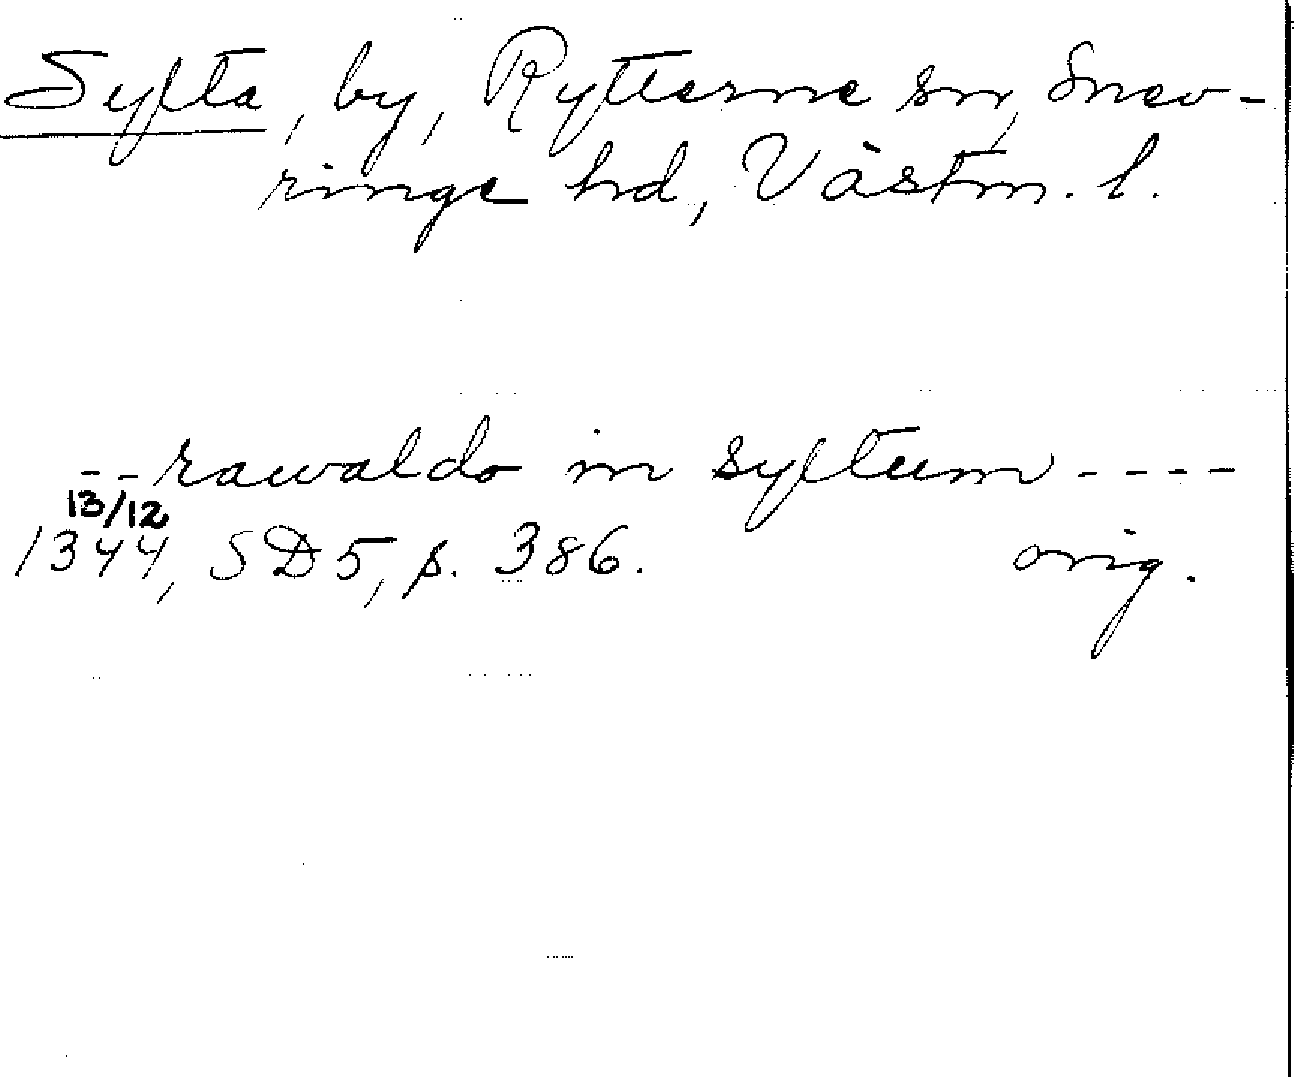 Sylta, by, Rytterne sn, Snev-
ringe hd, Västm. l.
- - rawaldo in syltum - - - -
13/12
1344, SD5, s. 386. orig.